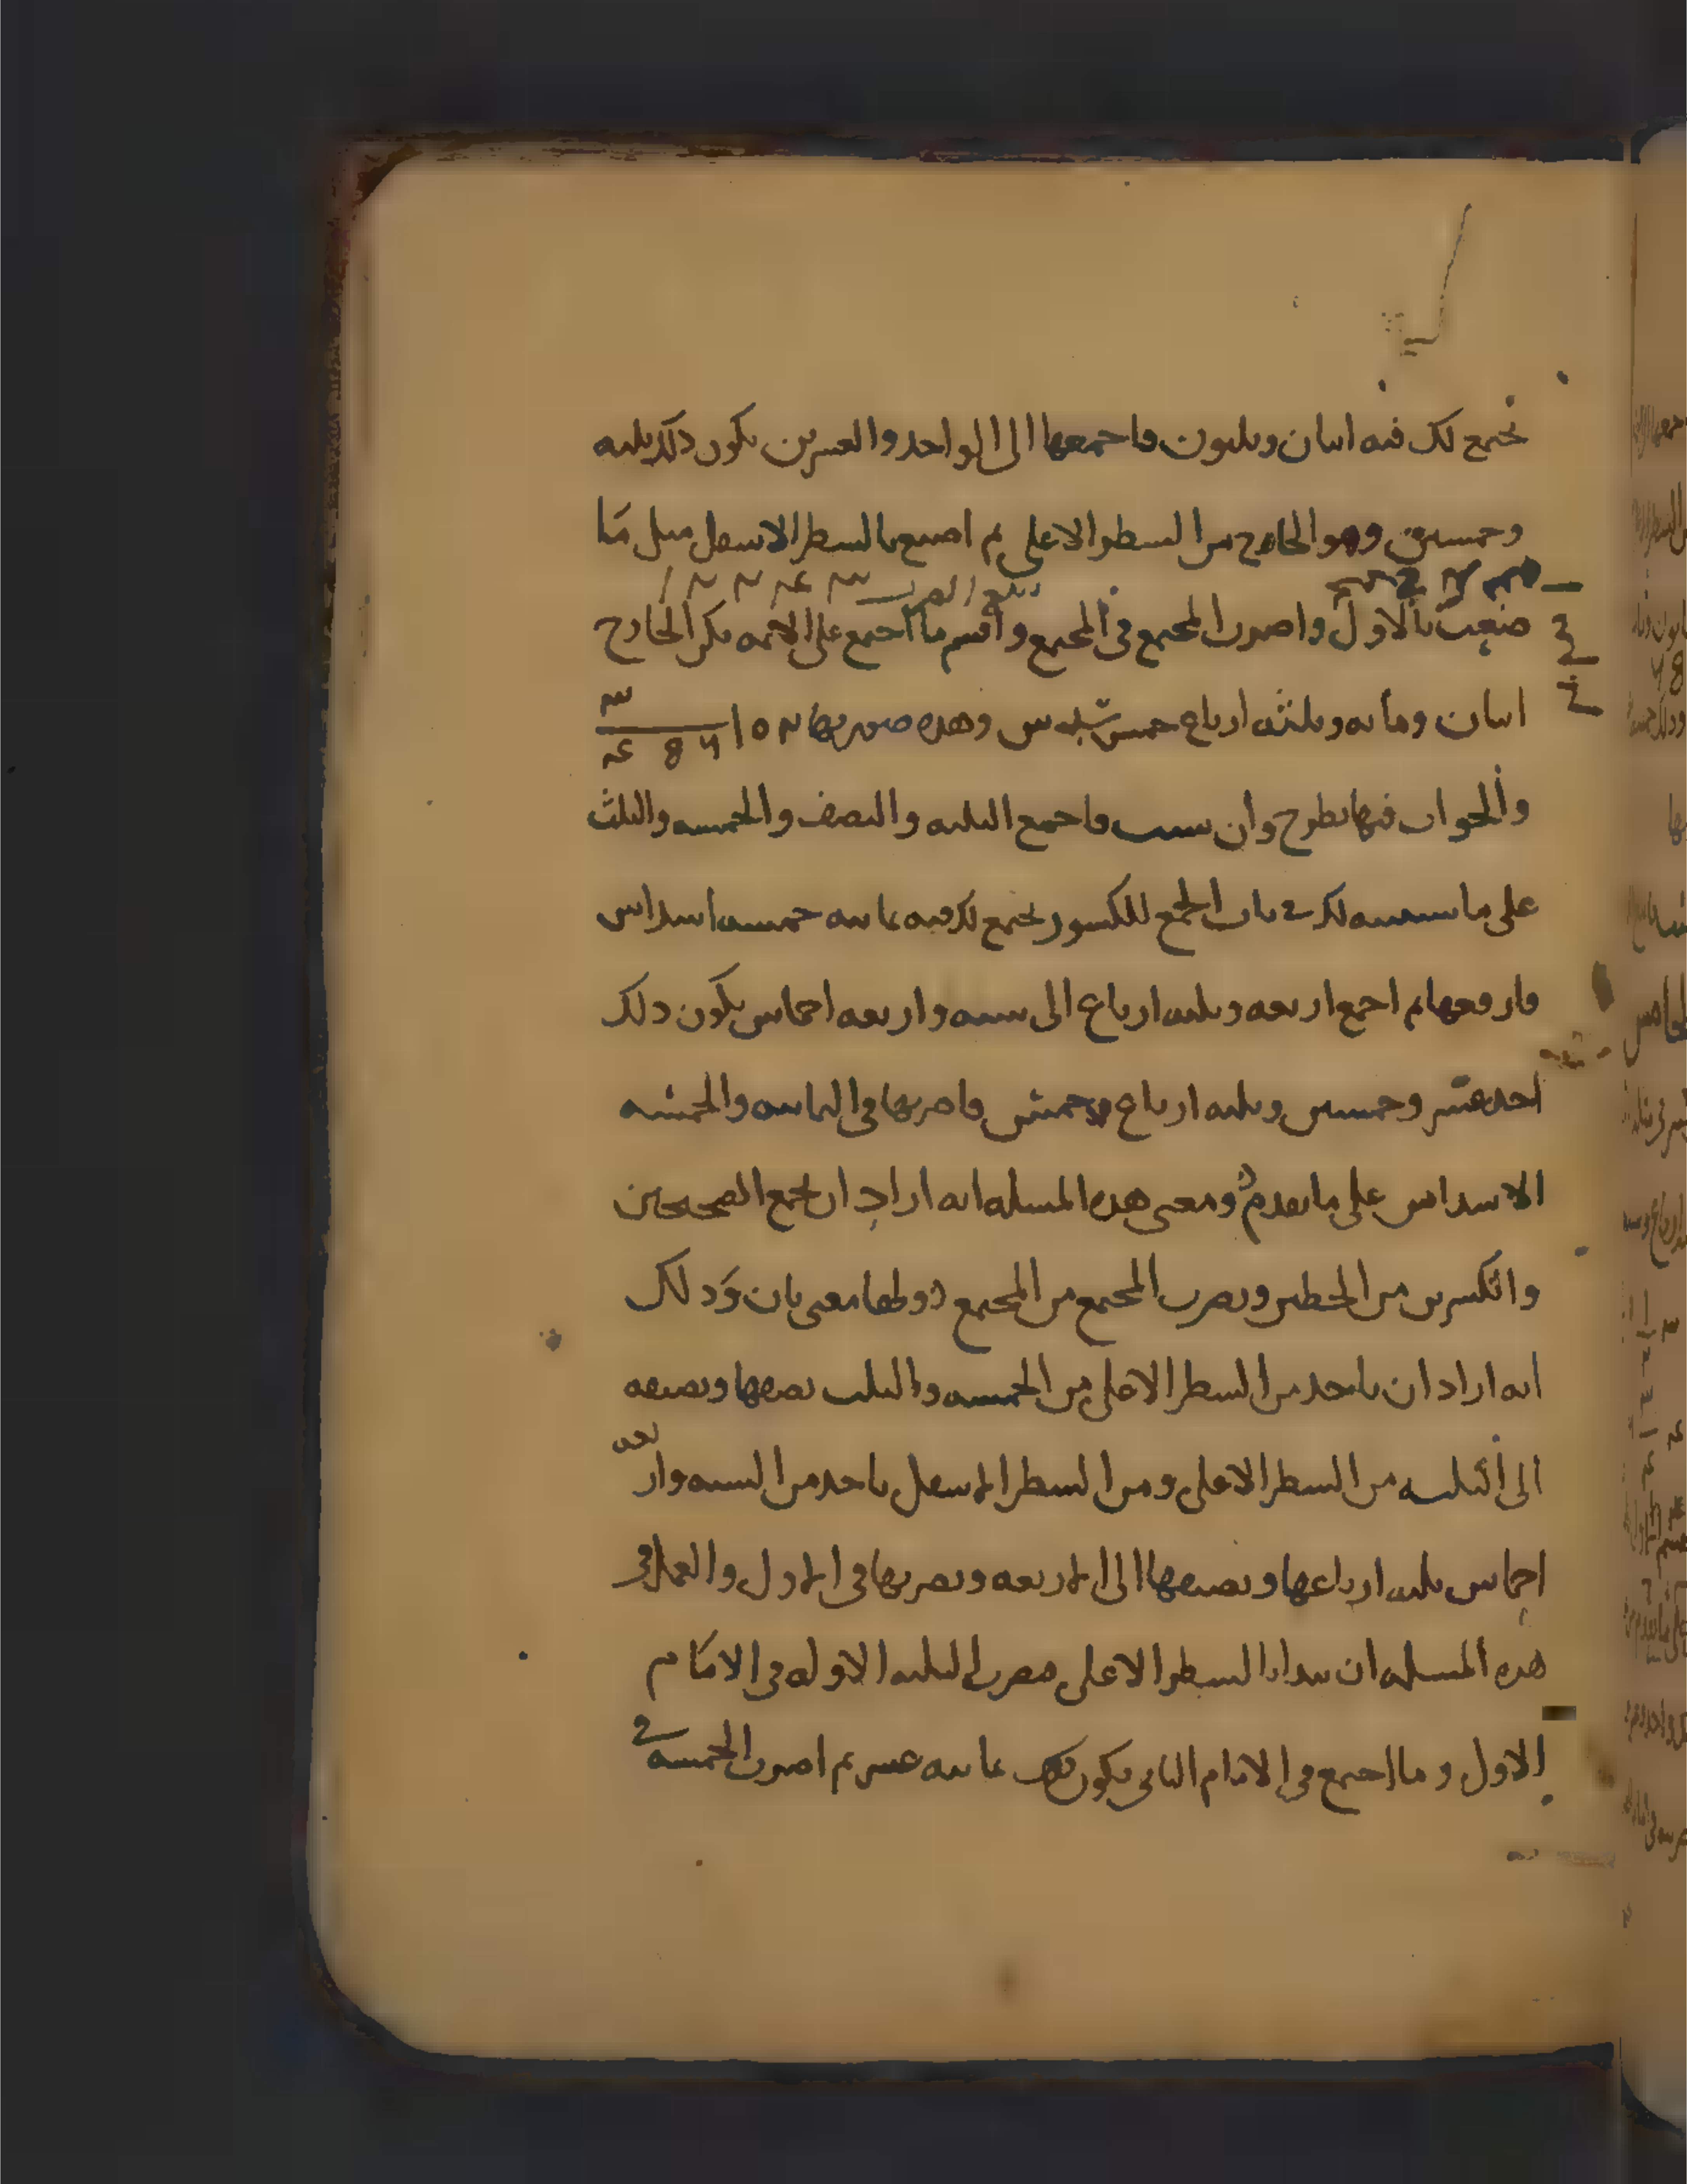 يجتمع لك فيه اثنان وثلثون فاجمعها الى الواحد والعشرين يكون ذلك ثلثه
وخمسين وهو الخارج من السطر الاعلى ثم اصنع بالسطر الاسفل مثل مَا
صنعت بالاول واضرب المجتمع في المجتمع واقسم ما اجتمع على الايمه يكن الخارج
اثنان ومائه وثلثه ارباع خمس وهذه صورتها
والجواب فيها يطرح وان شيت فاجمع الثلثه والنصف والخمسه والثلث
على ما سنبينه لك في باب الجمع للكسور يجتمع لك فيه ثمانيه خمسه اسداس
فارفعها ثم اجمع اربعه وثلثه ارباع الى سته واربعه اخماس يكون ذلك
احد عشر وخمسين وثلثه ارباع خمس فاضربها في الثمانيه والخمسه
الاسداس على ما تقدم ومعنى هذه المسله انه اراد ان يجمع الصحيحين
والكسرين من الخطين ويضرب المجتمع من المجتمع ولها معنى ثان وَذلك
انه اراد ان ياخذ من السطر الاعلى من الخمسه والثلث نصفها ويضيفه
الى الثلثه من السطر الاعلى ومن السطر الاسفل ياخذ من السته واربعه
اخماس ثلثه ارباعها ويضيفها الى الاربعه ويضربها في الاول والعمل في
هذه المسله ان تبدا بالسطر الاعلى فتضرب الثلثه الاوله في الامَام
الاول وما اجتمع في الامام الثاني يكون ذلك ثمانيه عشر ثم اضرب الخمسه في